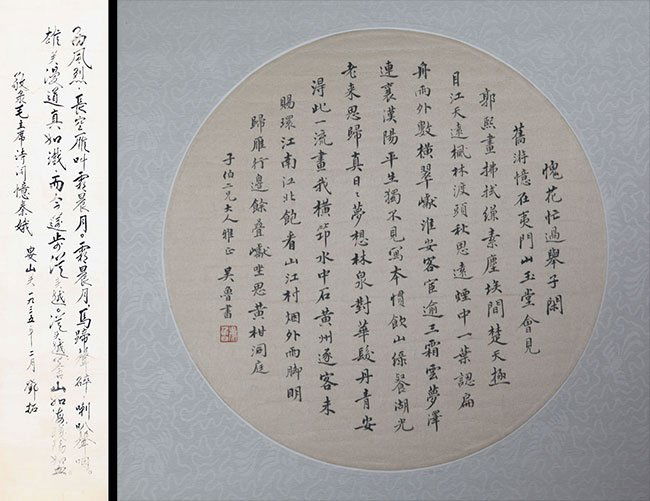 愧花忙過舉子閑
舊游憶在夷門山玉堂會見
郭熙畫拂拭縑素塵埃間楚天極
目江天遠楓林渡頭秋思遠煙中一葉認扁
舟雨外數橫翠巘淮安客宦逾三霜雲夢澤
連襄漢陽平生獨不見寫本慣飲山綠餐湖光
老来思歸真日日夢想林泉對華髮丹青安
得此一流畫我橫筇水中石黃州逐客未
賜環江南江北飽看山江村烟外雨脚明
歸雁行邊餘叠巘坐思黃柑洞庭
子伯二兄大人雅正 吴魯書
西風烈、長空雁叫霜晨月。霜晨月,馬蹄聲碎,喇叭聲咽
雄关漫道真如鐵,而今邁步從头越。從头越,蒼山如海,殘陽如血
敬录毛主席诗词憶秦娥
娄山关 一九三五年二月 鄧拓